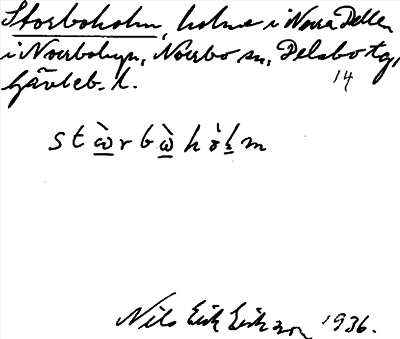 Storboholm, holme i Norra Dellen
i Norrbobyn, Norrbo sn, Delsbo tg,
Gävleb. l. 14
st ὼ r b ὼ h m
Nils Erik Eriksson 1936.